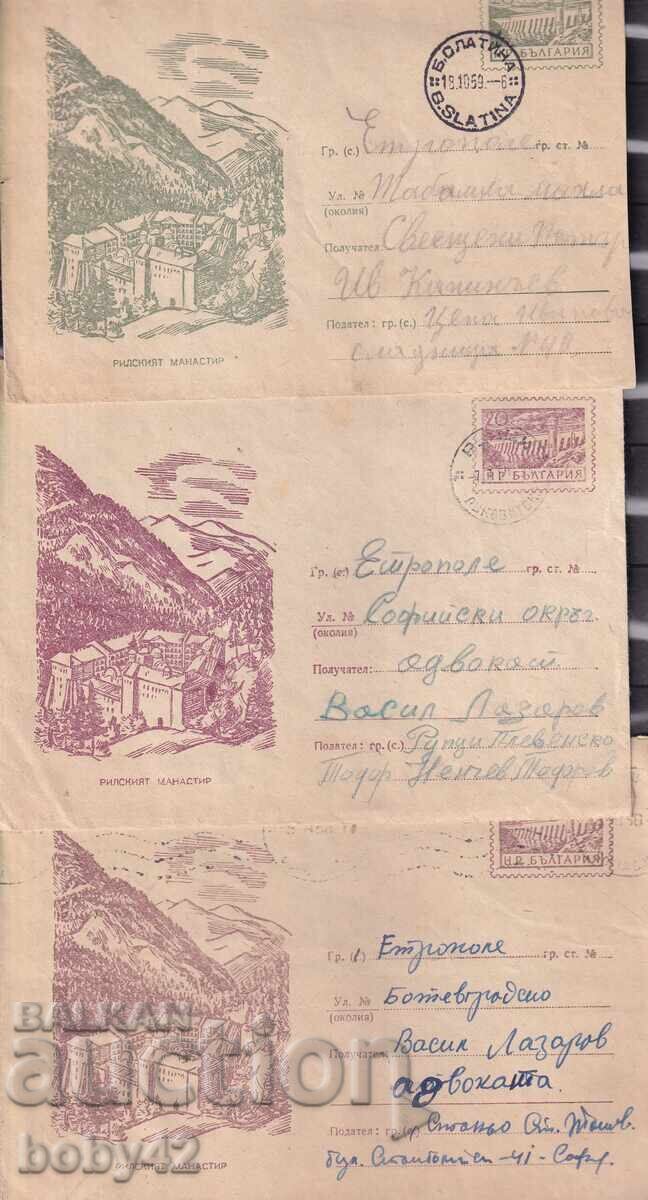 Н Р БЪЛГАРИЯ
Б. СЛАТИНА
18.10.59.–6
B. SLATINA
Гр. (с.) Етрополе гр. ст. №
Ул. № Табашка махла
(околия)
Получател
Ив
Подател : гр. (с.) Цена Иванова
РИЛСКИЯТ МАНАСТИР
20
Н Р БЪЛГАРИЯ
Гр. (с.) Етрополе гр. ст. №
Ул. № Софийски окръг
(околия)
Получател: адвокат
Васил Лазаров
Подател: гр. (с.) Рупци Плевенско
Тодор Ненчев
РИЛСКИЯТ МАНАСТИР
Н Р БЪЛГАРИЯ
Гр. (с.) Етрополе гр. ст. №
Ул. № Ботевградско
(околия)
Получател: Васил Лазаров
адвоката
Подател: гр. (с.)
41 – Соф.
РИЛСКИЯТ МАНАСТИР
BALKAN
auction
boby42